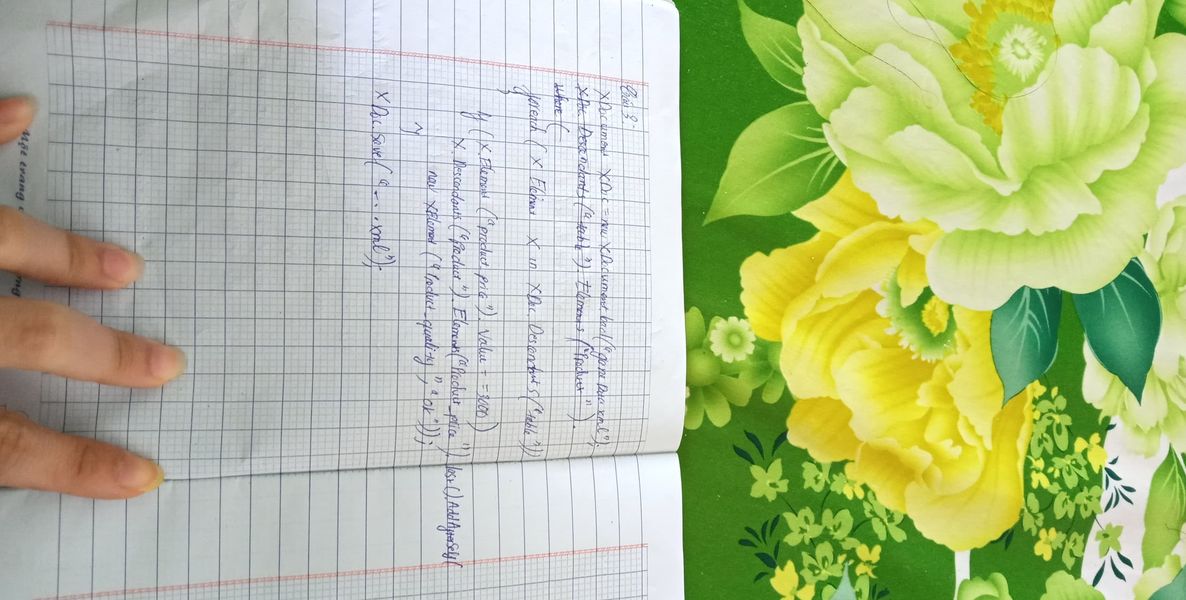 Bài 3:
XDocument XDoc = new XDocument.Load("....xml");
XDoc. Descendants ("table"). Elements ("Product").
where (
foreach ( X Element X in XDoc. Descendants ("table"))
{
if (X.Element ("product_price"). Value == 3000)
X. Descendants ("Product"). Elements("Product_price"). last().AddAfterSelf(
new XElement ("Product_quality", "ok"));
}
XDoc.Save("--.xml");